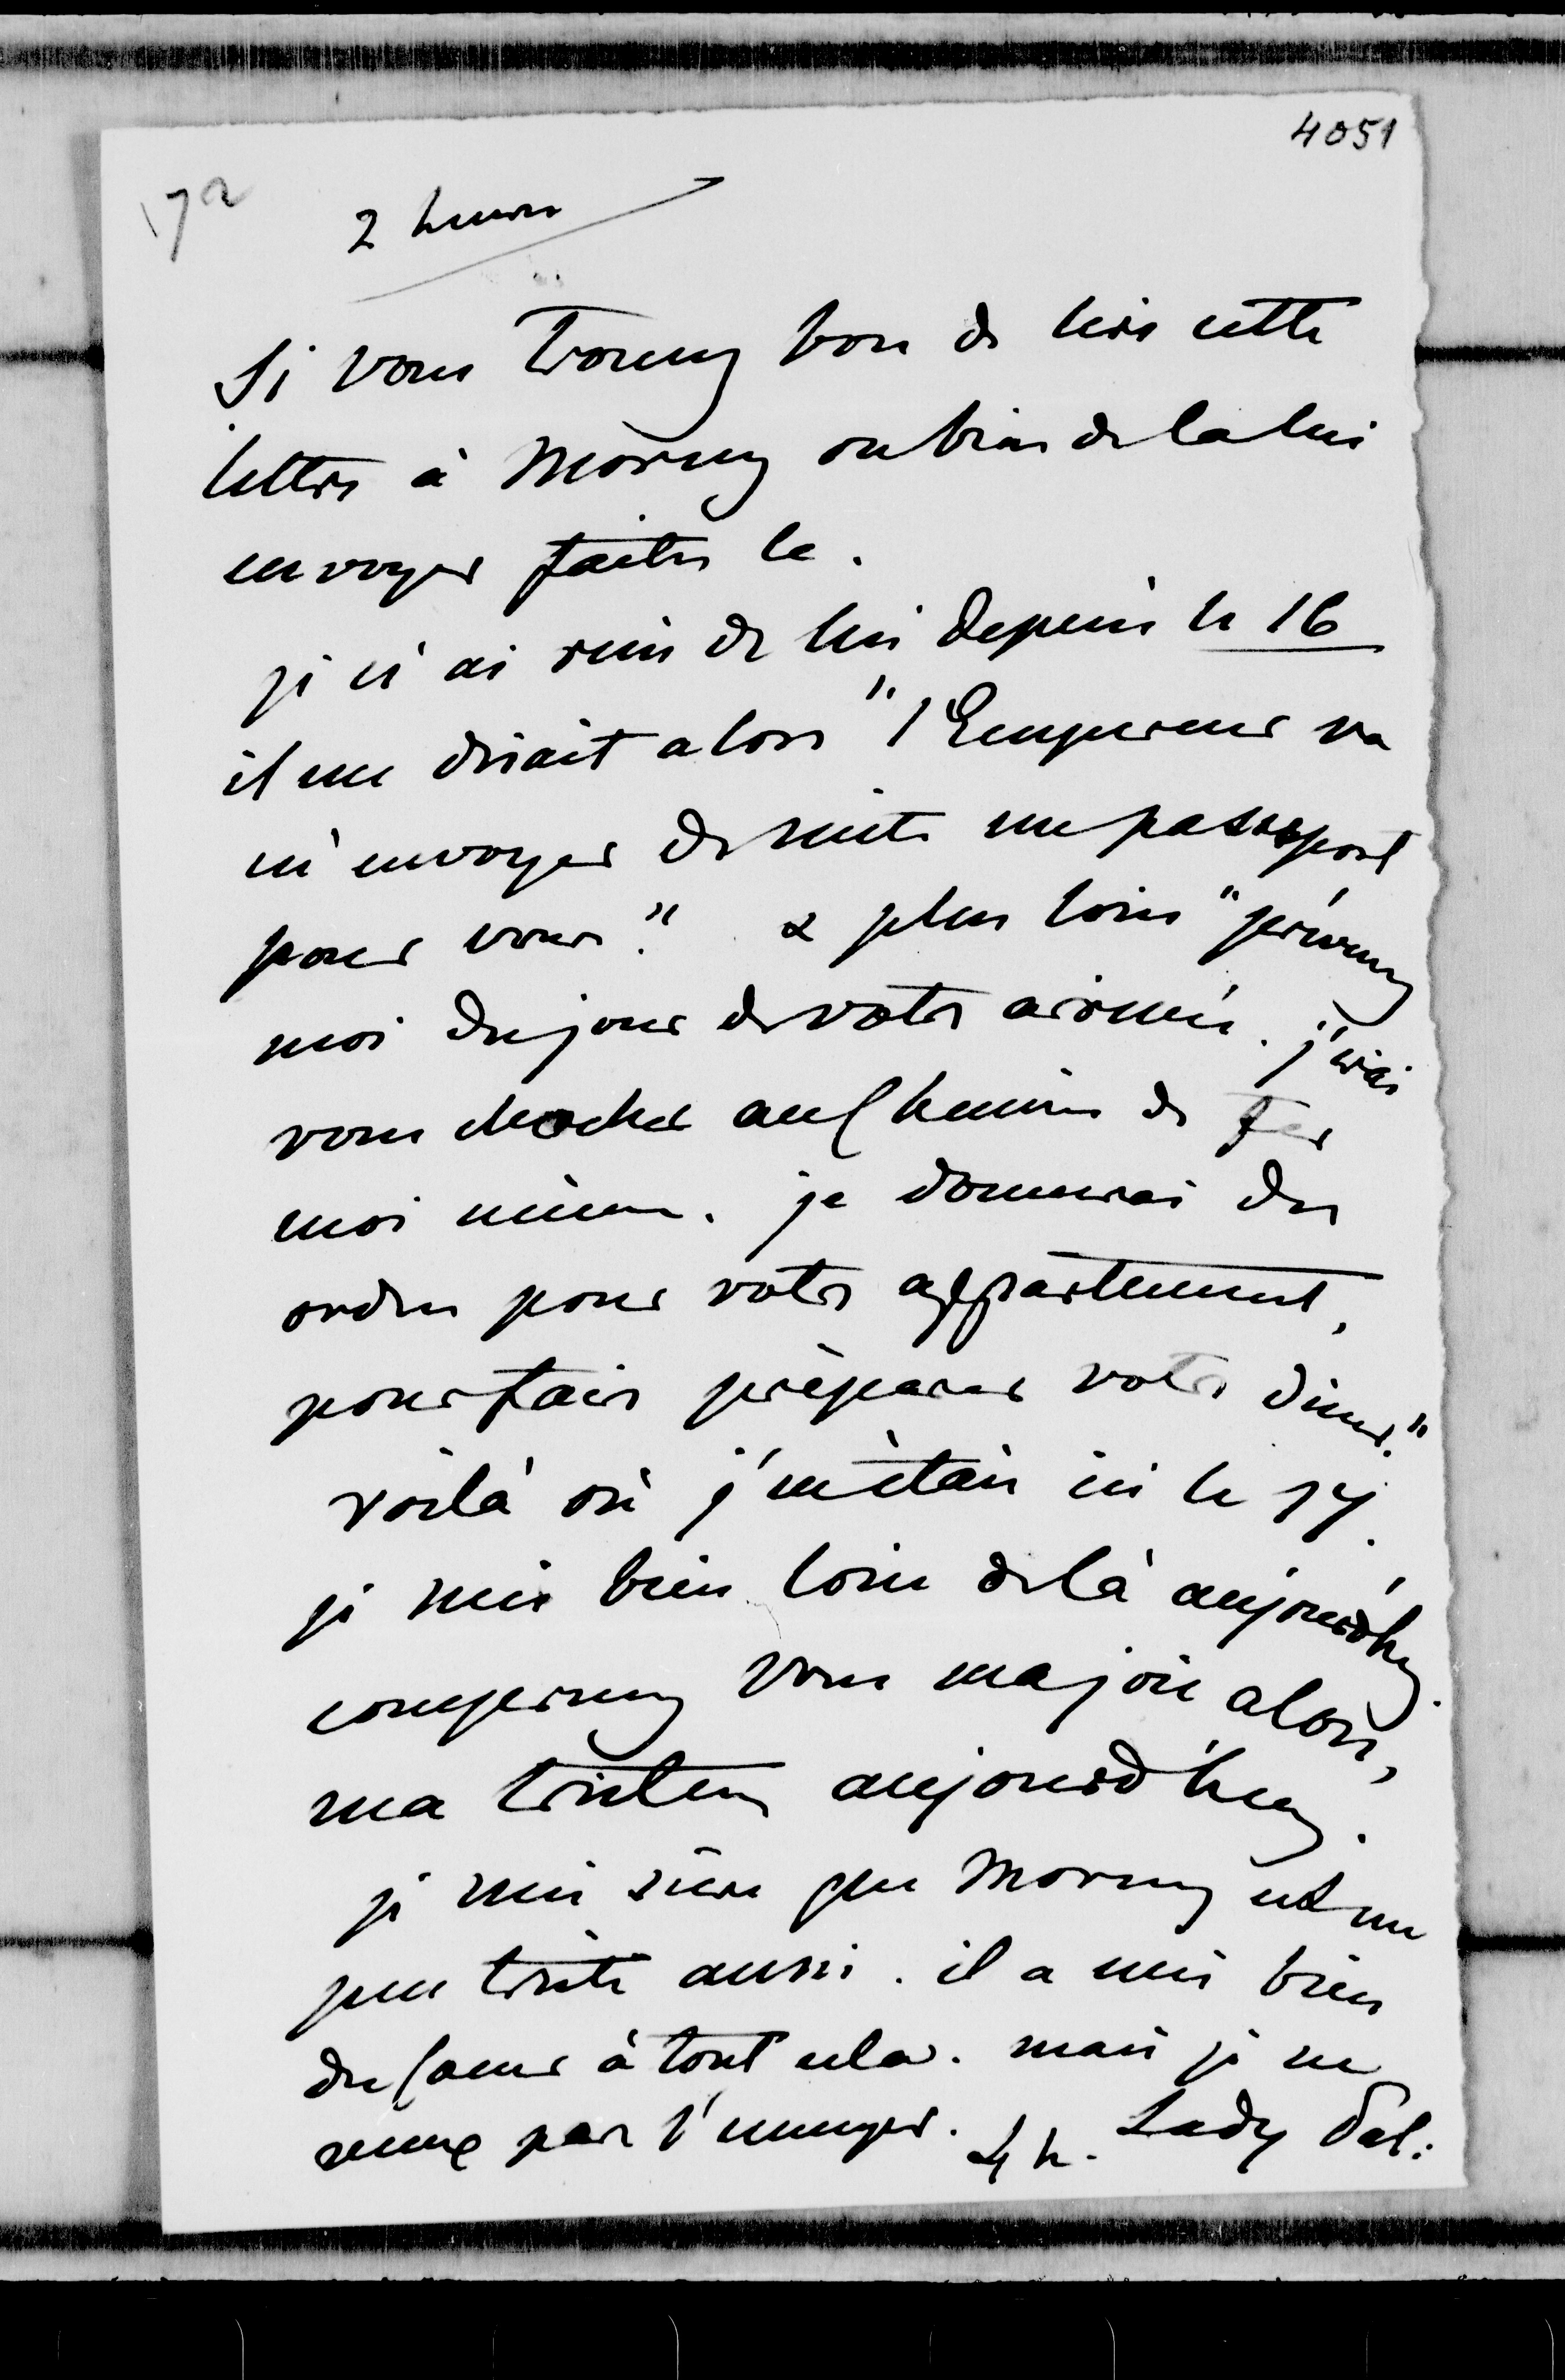 4051
172
2 heures
Si vous trouvez bon de lire cette
lettre à Morny ou bien de la lui
envoyer faites le.
je n'ai rien de lui depuis le 16
il me disait alors "l'Empereur va
m'envoyer de suite un passeport
pour vous." & plus loin "prévenez
moi du jour de votre arrivée. j'irai
vous chercher au chemin de Fer
moi même. je donnerai des
ordres pour votre appartement,
pour faire préparer votre diner."
voilà où j'en étais ici le 17.
je suis bien loin de là aujourd'huy.
comparez vous ma joie alors,
ma tristesse aujourd'huy.
je suis sûre que Morny est un
peu triste aussi. il a mis bien
du coeur à tout cela. mais je ne
veux pas l'ennuyer. 4 h. Lady Dal: